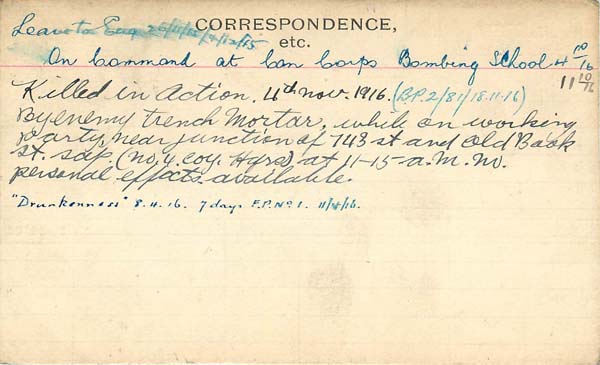 CORRESPONDENCE,
etc.
Leave to Eng 26/11/15 /12/15
On Command at Can Corps Bombing School 4 10/16
11 10/16
Killed in action. 11th nov. 1916. (B.P.2/81/18.11.16)
By enemy trench mortar, while on working
party, near junction of 743 st and Old Book
st. sap, (no. 4. coy. Hqrs) at 11-15 a.m. no.
personal effects available.
"Drunkenness" 8.11.16. 7 days F.P. No 1. 11/11/16.